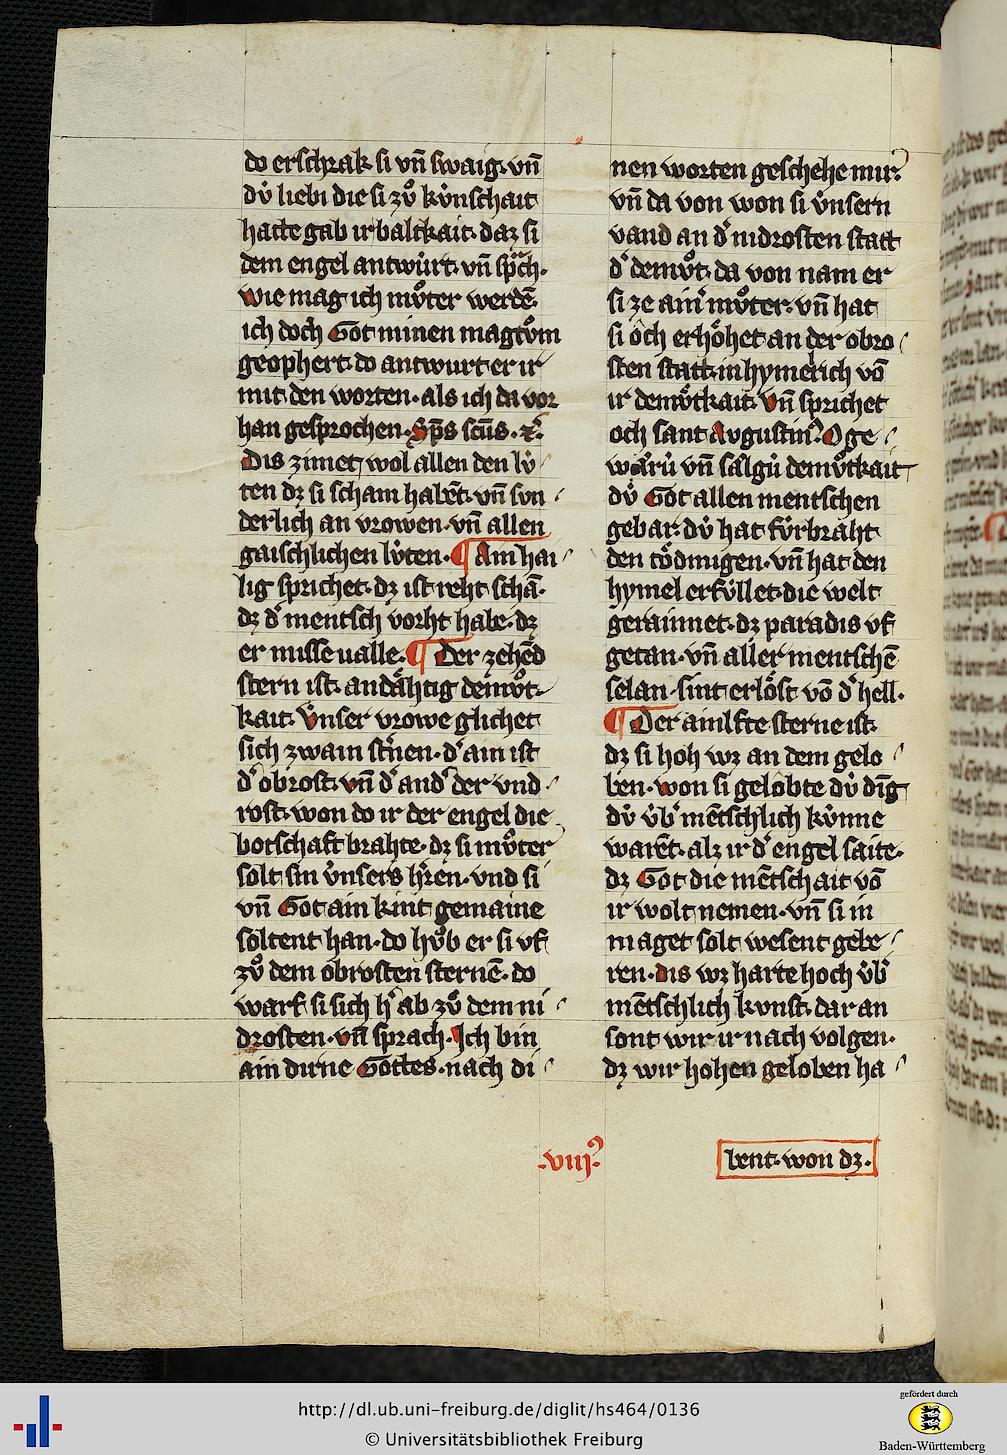 do erschrak si vn̄ swaig· vn̄
dv̍ liebi die si zv̊ kv̍nschait
hatte gab ir baltkait· daz si
dem engel antwu̍rt· vn̄ sp͛ch·
wie mag ich mv̊ter werdē·
ich doch Got minen magtv̊m
geophert· do antwurt er ir
mit den worten· als ich da vor
han gesprochen· Sp̄s scūs· ⁊͛·
Dis zimet wol allen den lv̍
ten dz si scham habēt· vn̄ svn
derlich an vrowen· vn̄ allen
gaischlichen lv̍ten· ¶ Ain hai
lig sprichet· dz ist reht schā·
dz d͛ mentsch vorht habe· dz
er misseualle· ¶ Der zehēd
stern ist· andähtig demv̊t
kait· v̍nser vrowe glichet
sich zwain st͛nen· d͛ ain ist
d͛ obrost· vn̄ d͛ and͛ der vnd
rost· won do ir der engel die
botschaft brahte· dz si mv̊ter
solt sin v̍nsers h͛ren· vnd si
vn̄ Got ain kint gemaine
soltent han· do hv̊b er si vf
zv̊ dem obrosten sternē· do
warf si sich h͛ ab zv̊ dem ni
drosten· vn̄ sprach· Ich bin
ain dirne Gottes· nach di
nen worten geschehe mir·
vn̄ da von won si v̍nsern
vand an d͛ nidrosten statt
d͛ demv̊t· da von nam er
si ze ain͛ mv̊ter· vn̄ hat
si och erhöhet an der obro
sten statt· in hymelrich vō
ir demv̊tkait· Vn̄ sprichet
och sant Avgustin͛· O ge
wärv̍ vn̄ sälgv̍ demv̊tkait
dv̍ Got allen mentschen
gebar· dv̍ hat fv̍rbraht
den tödmigen· vn̄ hat den
hymel erfv̍llet· die welt
gerainnet· dz paradis vf
getan· vn̄ aller mentschē
selan· sint erlöst vō d͛ hell·
¶ Der ainlfte sterne ist·
dz si hoh wz an dem gelo
ben· won si gelobte dv̍ dīg
dv̍ v̍b͛ mētschlich kv̍nne
warēt· alz ir d͛ engel saite·
dz Got die mētschait vō
ir wolt nemen· vn̄ si in
maget solt wesent gebe
ren· dis wz harte hoch v̍b͛
mētschlich kvnst· dar an
sont wir ir nach volgen·
dz wir hohen geloben ha
·viij·
bent· won dz·
http://dl.ub.uni-freiburg.de/diglit/hs464/0136
© Universitätsbibliothek Freiburg
gefördert durch
Baden-Württemberg